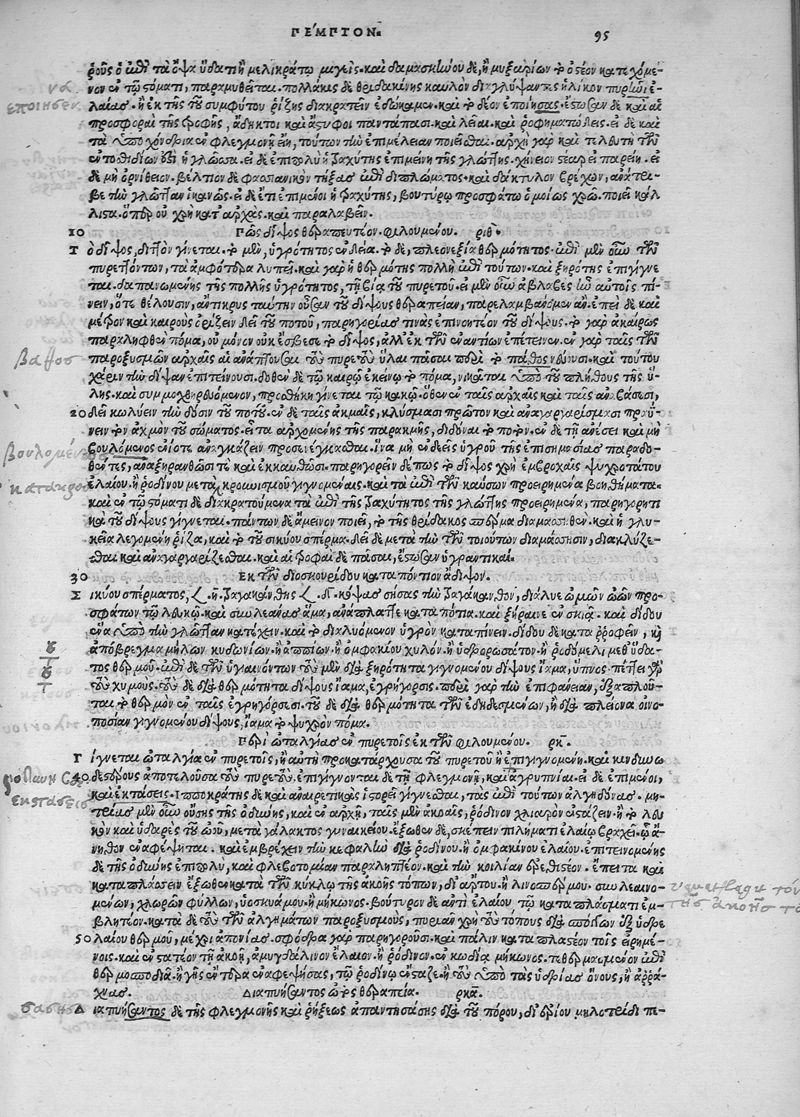 ΠΕΜΠΤΟΝ. 95
τὰ ὄψα ὕδατι ἢ μελικράτῳ καὶ δαμασκηνοῦ δὲ, ἢ μυξαρίων τὸ ὀστέον κατεχόμε-
νον ἐν τῷ στόματι, παραμυθεῖται. πολλάκις δὲ θριδακίνης καυλὸν
ἐποίησεν
λαίας. ἢ ἐκ τῆς τοῦ συμφύτου ῥίζης διακρατεῖν ἐδώκαμεν. καὶ τὸ δέον ἐποίησας. ἔστωσαν δὲ καὶ αἱ
προσφοραὶ τῆς τροφῆς, ἄδηκτοι καὶ ἄστυφοι παντάπασι. καὶ λεῖαι. καὶ ῥοφηματώδεις. εἰ δὲ καὶ
τὰ ὑποχόνδρια ἐν φλεγμονῇ εἴη, τούτων τὴν ἐπιμέλειαν ποιεῖσθαι. ἀρχὴ γὰρ καὶ τελευτὴ τῶν
ἐντοσθιδίων ἡ γλῶσσα. εἰ δὲ ἐπιπολὺ ἡ τραχύτης ἐπιμένει τῆς γλώττης. χήνειον στέαρ ἐπαρκεῖ. εἰ
δὲ μὴ ὀρνίθειον. βέλτιον δὲ φασιανικὸν τήξας ἐπὶ διπλώματος. καὶ δάκτυλον βρέχων, ἀνάτρι-
βε τὴν γλῶτταν ἱκανῶς. εἰ δὲ ἔτι ἐπιμένοι ἡ τραχύτης, βουτύρῳ προσφάτῳ ὁμοίως χρῶ. ποιεῖ κάλ-
λιστα. ὅπερ οὐ χρὴ κατ' ἀρχὰς. καὶ παραλαβεῖν.
10 Πῶς δίψος θεραπευτέον. Φιλουμένου. ριθ.
Τὸ δίψος, διττὸν γίνεται. τὸ μὲν, ὑγρότητος ἐνδείᾳ. τὸ δὲ, πλεονεξίᾳ θερμότητος. ἐπὶ μὲν οὖν τῶν
πυρεττόντων, τὰ ἀμφότερα λυπεῖ. καὶ γὰρ ἡ θερμότης πολλὴ ἐπὶ τούτων. καὶ ξηρότης ἐπιγίγνε-
ται. δαπανωμένης τῆς πολλῆς ὑγρότητος, τῇ βίᾳ τοῦ πυρετοῦ. εἰ μὲν οὖν ἀβλαβὲς ἦν αὐτοῖς πί-
νειν, ὅτε θέλουσιν, ἄντικρυς ταύτην οὖσαν τοῦ δίψους θεραπείαν, παρελαμβάνομεν ἄν. ἐπεὶ δὲ καὶ
μέτρον καὶ καιροὺς ὁρίζειν δεῖ τοῦ ποτοῦ, παρηγορίας τινὰς ἐπινοητέον τοῦ δίψους. τὸ γὰρ ἀκαίρως
παραληφθὲν πόμα, οὐ μόνον οὐκ ἔσβεσε τὸ δίψος, ἀλλ' ἐκ τῶν ἐναντίων ἐπέτεινεν. ἐν γὰρ ταῖς τῶν
βάθος
παροξυσμῶν ἀρχαῖς αἱ ἀνάπτουσαι τὸν πυρετὸν ὗλαι πᾶσαι περὶ τὸ πάθος νεύουσι. καὶ τούτου
χάριν τὴν δίψαν ἐπιτείνουσι. δοθὲν δὲ τῷ καιρῷ ἐκείνῳ τὸ πόμα, νικᾶται ὑπὸ τοῦ πλήθους τῆς ὕ-
λης. καὶ συμμοχθηρυνόμενον, προσθήκη γίνεται τῷ κακῷ. ὅθεν ἐν ταῖς ἀρχαῖς καὶ ταῖς ἀναβάσεσι,
20 δεῖ κωλύειν τὴν δόσιν τοῦ ποτοῦ. ἐν δὲ ταῖς ἀκμαῖς, κλύσμασι πρῶτον καὶ ἀναγαργαρίσμασι πραΰ-
νειν τὸν αὐχμὸν τοῦ σώματος. εἶτα ἀρχομένης τῆς παρακμῆς, διδόναι τὸ ποτόν. ἐν δὲ τῇ ἀνέσει καὶ μὴ
βουλόμενος ἐνίοτε ἀναγκάζειν προσενέγκασθαι. ἵνα μὴ ἐνδεεῖς ὑγροῦ τῆς ἐπισημασίας παραδο-
θέντες, ἀναξηρανθῶσί τε καὶ ἐκκαυθῶσι. παρηγορεῖν δέ πως τὸ δίψος χρὴ ἐμβροχαῖς ψυχροτάτου
ἐλαίου. ἢ ῥοδίνου μετακροκισμοῦ γιγνομέναις. καὶ τὰ ἐπὶ τῶν καύσων προειρημένα βοηθήματα.
καὶ ἐν τῷ στόματι δὲ διακρατούμενα τὰ ἐπὶ τῆς τραχύτητος τῆς γλώττης προειρημένα, παρηγορητι-
κὰ τοῦ δίψους γίγνεται. πάντων δὲ ἄμεινον ποιεῖ, τὸ τῆς θρίδακος σπέρμα διαμασηθὲν. καὶ ἡ γλυ-
κεῖα λεγομένη ῥίζα, καὶ τὸ τοῦ σικύου σπέρμα. δεῖ δὲ μετὰ τὴν τῶν τοιούτων διαμάσησιν, διακλύζε-
σθαι καὶ ἀναγαργαρίζεσθαι. καὶ αἱ τροφαὶ δὲ πᾶσαι, ἔστωσαν ὑγραντικαί.
30 Ἐκ τῶν Διοσκουρίδου καταπότιον ἄδιψον.
Σικύου σπέρματος, η. τραγακάνθης δ. κόψας σήσας τὴν τραγάκανθαν, διάλυε ὠμῶν ὠῶν προ-
σφάτων τῷ λευκῷ. καὶ συλλεάνας ἅμα, ἀνάπλαττε καταπότια. καὶ ξήραινε ἐν σκιᾷ. καὶ δίδου
ἓν ὑπὸ τὴν γλῶτταν κατέχειν. καὶ τὸ διαλυόμενον ὑγρὸν καταπίνειν. δίδου δὲ καταρροφεῖν, καὶ
ἀπόβρεγμα μήλων κυδωνίων. ἢ ἀπίων. ἢ ὀμφακίου χυλόν. ἢ ὑδροροσάτον. ἢ ῥοδόμελι μεθ' ὕδα-
τος θερμοῦ. ἐπὶ δὲ τῶν ὑγιαινόντων τοῦ μὲν διὰ ξηρότητα γιγνομένου δίψους ἴαμα, ὕπνος. πέττει γὰρ
τοὺς χυμούς. τοῦ δὲ διὰ θερμότητα δίψους ἴαμα, ἐγρήγορσις. περὶ γὰρ τὴν ἐπιφάνειαν, ἐξαπλοῦ-
ται τὸ θερμὸν ἐν ταῖς ἐγρηγόρσεσι. τοῦ δὲ διὰ θερμότητα τῶν ἐδηδεσμένων, ἢ διὰ πλείονα οἰνο-
ποσίαν γιγνομένου δίψους, ἴαμα τὸ ψυχρὸν πόμα.
Περὶ ὠταλγίας ἐν πυρετοῖς ἐκ τῶν Φιλουμένου. ρκ.
Γίγνεται ὠταλγία ἐν πυρετοῖς, ἢ αὐτὴ προκατάρχουσα τοῦ πυρετοῦ ἢ ἐπιγιγνομένη. καὶ κινδυνώ-
40 δεστέρους ἀποτελοῦσα τοὺς πυρετούς. ἐπιγίγνονται δὲ τῇ φλεγμονῇ, καὶ ἀγρυπνίαι. εἰ δὲ ἐπιμένοι,
ἐκστάσεις
καὶ ἐκτάσεις. Ἱπποκράτης δὲ καὶ ἀναιρετικὰς ἱστορεῖ γίγνεσθαι, τὰς ἐπὶ τούτων ἀλγηδόνας. με-
τρίας μὲν οὖν οὔσης τῆς ὀδύνης, καὶ ἐν ἀρχῇ, ταῖς μὲν ἀκοαῖς, ῥόδινον χλιαρὸν ἐνστάζειν. ἢ τὸ λευ-
κὸν καὶ ὑδαρὲς τοῦ ὠοῦ, μετὰ γάλακτος γυναικείου. ἔξωθεν δὲ, σκέπειν πιλήματι ἐλαίῳ βραχέν. ᾧ ἄ-
νηθον ἐναφέψηται. καὶ ἐμβρέχειν τὴν κεφαλὴν διὰ ῥοδίνου. ἢ ὀμφακίνου ἐλαίου. ἐπιτεινομένης
δὲ τῆς ὀδύνης ἐπιπολὺ, καὶ φλεβοτομίαν παραληπτέον. καὶ τὴν κοιλίαν ἐρεθιστέον. ἔπειτα καὶ
καταπλάσσειν ἔξωθεν κατὰ τῶν κύκλῳ τῆς ἀκοῆς τόπων, δι' ἄρτου. ἢ λινοσπέρμου. συλλεαινο-
μένων, χλωρῶν φύλλων, ὑοσκυάμου. ἢ μήκωνος. βούτυρον δὲ ἀντὶ ἐλαίου τῷ καταπλάσματι ἐμ-
βλητέον. κατὰ δὲ τοὺς τῶν ἀλγημάτων παροξυσμοὺς, πυριᾶν χρὴ τοὺς τόπους διὰ σπόγγων ἐξ ὑδρε-
50 λαίου θερμοῦ, μέχρι ἀπονίας. σφόδρα γὰρ παρηγοροῦσι. καὶ πάλιν καταπλαστέον τοῖς εἰρημέ-
νοις. καὶ ἐνστακτέον τῇ ἀκοῇ, ἀμυγδάλινον ἔλαιον. ἢ ῥόδινον. ἐν κωδίᾳ μήκωνος. τεθερμασμένον ἐπὶ
θερμοσποδιᾶς. ἢ γῆς ἔντερα ἐναφεψήσας, τῷ ῥοδίνῳ ἔνσταζε. ἢ τοὺς ὑπὸ τὰς ὑδρίας ὄνους, ἢ ἀρά-
χνας. Διαπυήσαντος ὠτὸς θεραπεία. ρκα.
Διαπυήσαντος δὲ τῆς φλεγμονῆς καὶ ῥήξεως ἀπαντησάσης διὰ τοῦ πόρου, δι' ἐρίου μηλωτρίδι πε-